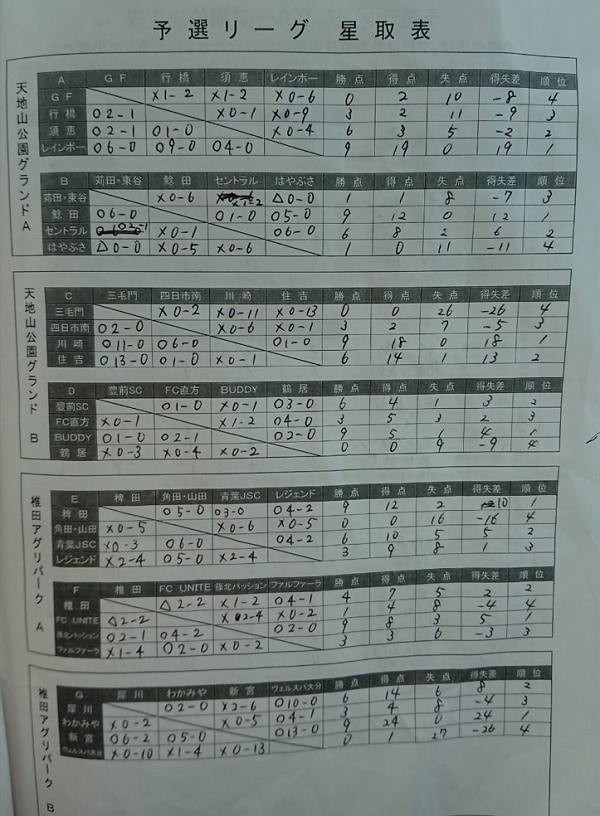 予選リーグ 星取表
天地山公園グランド A
A GF 行橋 須恵 レインボー 勝点 得点 失点 得失差 順位
GF X1-2 X1-2 X0-6 0 2 10 -8 4
行橋 O2-1 X0-1 X0-9 3 2 11 -9 3
須恵 O2-1 O1-0 X0-4 6 3 5 -2 2
レインボー O6-0 O9-0 O4-0 9 19 0 19 1
B 苅田・東谷 鯰田 セントラル はやぶさ 勝点 得点 失点 得失差 順位
苅田・東谷 X0-6 X1-2 △0-0 1 1 8 -7 3
鯰田 O6-0 O1-0 O5-0 9 12 0 12 1
セントラル O2-1 X0-1 O6-0 6 8 2 6 2
はやぶさ △0-0 X0-5 X0-6 1 0 11 -11 4
天地山公園グランド B
C 三毛門 四日市南 川崎 住吉 勝点 得点 失点 得失差 順位
三毛門 X0-2 X0-11 X0-13 0 0 26 -26 4
四日市南 O2-0 X0-6 X0-1 3 2 7 -5 3
川崎 O11-0 O6-0 O1-0 9 18 0 18 1
住吉 O13-0 O1-0 X0-1 6 14 1 13 2
D 豊前SC FC直方 BUDDY 鶴居 勝点 得点 失点 得失差 順位
豊前SC O1-0 X0-1 O3-0 6 4 1 3 2
FC直方 X0-1 X1-2 O4-0 3 5 3 2 3
BUDDY O1-0 O2-1 O2-0 9 5 1 4 1
鶴居 X0-3 X0-4 X0-2 0 0 9 -9 4
椎田アグリパーク A
E 稗田 角田・山田 青葉JSC レジェンド 勝点 得点 失点 得失差 順位
稗田 O5-0 O3-0 O4-2 9 12 2 10 1
角田・山田 X0-5 X0-6 X0-5 0 0 16 -16 4
青葉JSC X0-3 O6-0 O4-2 6 10 5 5 2
レジェンド X2-4 O5-0 X2-4 3 9 8 1 3
F 椎田 FC UNITE 篠北パッション ファルファーラ 勝点 得点 失点 得失差 順位
椎田 △2-2 X1-2 O4-1 4 7 5 2 2
FC UNITE △2-2 X2-4 X0-2 1 4 8 -4 4
篠北パッション O2-1 O4-2 O2-0 9 8 3 5 1
ファルファーラ X1-4 O2-0 X0-2 3 3 6 -3 3
椎田アグリパーク B
G 犀川 わかみや 新宮 ヴェルスパ大分 勝点 得点 失点 得失差 順位
犀川 O2-0 X2-6 O10-0 6 14 6 8 2
わかみや X0-2 X0-5 O4-1 3 4 8 -4 3
新宮 O6-2 O5-0 O13-0 9 24 0 24 1
ヴェルスパ大分 X0-10 X1-4 X0-13 0 1 27 -26 4